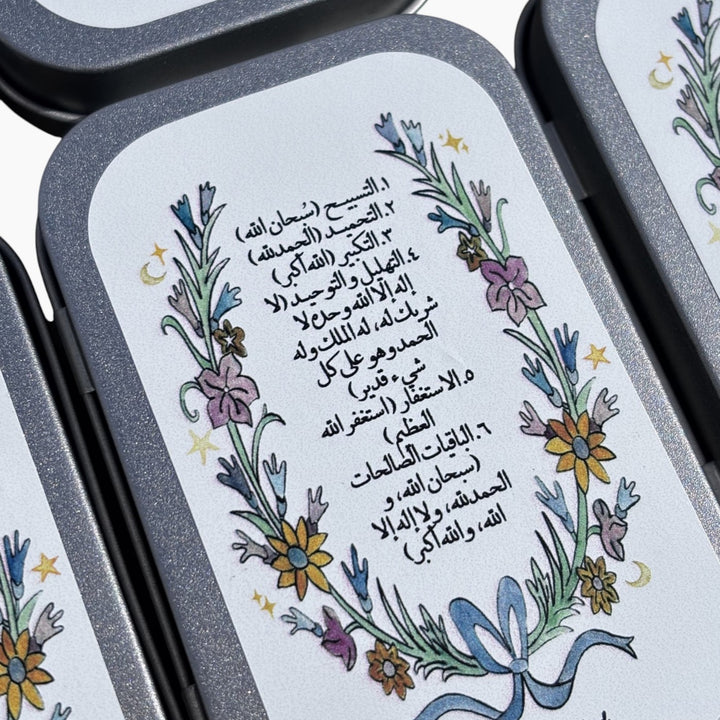 ١. التسبيح (سُبحان الله)
٢. التحميد (الحمدلله)
٣. التكبير (الله أكبر)
٤. التهليل والتوحيد (لا
إله إلا الله وحده لا
شريك له، له الملك وله
الحمد وهو على كل
شيء قدير)
٥. الاستغفار (استغفر الله
العظيم)
٦. الباقيات الصالحات
(سبحان الله، و
الحمدلله، ولا إله إلا
الله، والله أكبر)